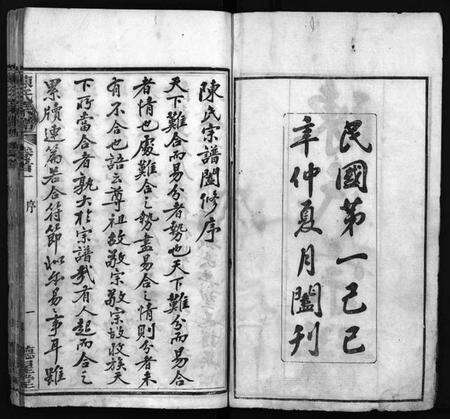 民國第一己巳
年仲夏月闔刊
陳氏宗譜闔修序
天下難合而易分者勢也天下難分而易合
者情也處難合之勢盡易合之情則分者未
有不合也語云尊祖故敬宗敬宗故收族天
下所當合者孰大於宗譜哉有人起而合之
累牘連篇若合符節似乎易事耳雖
序
一